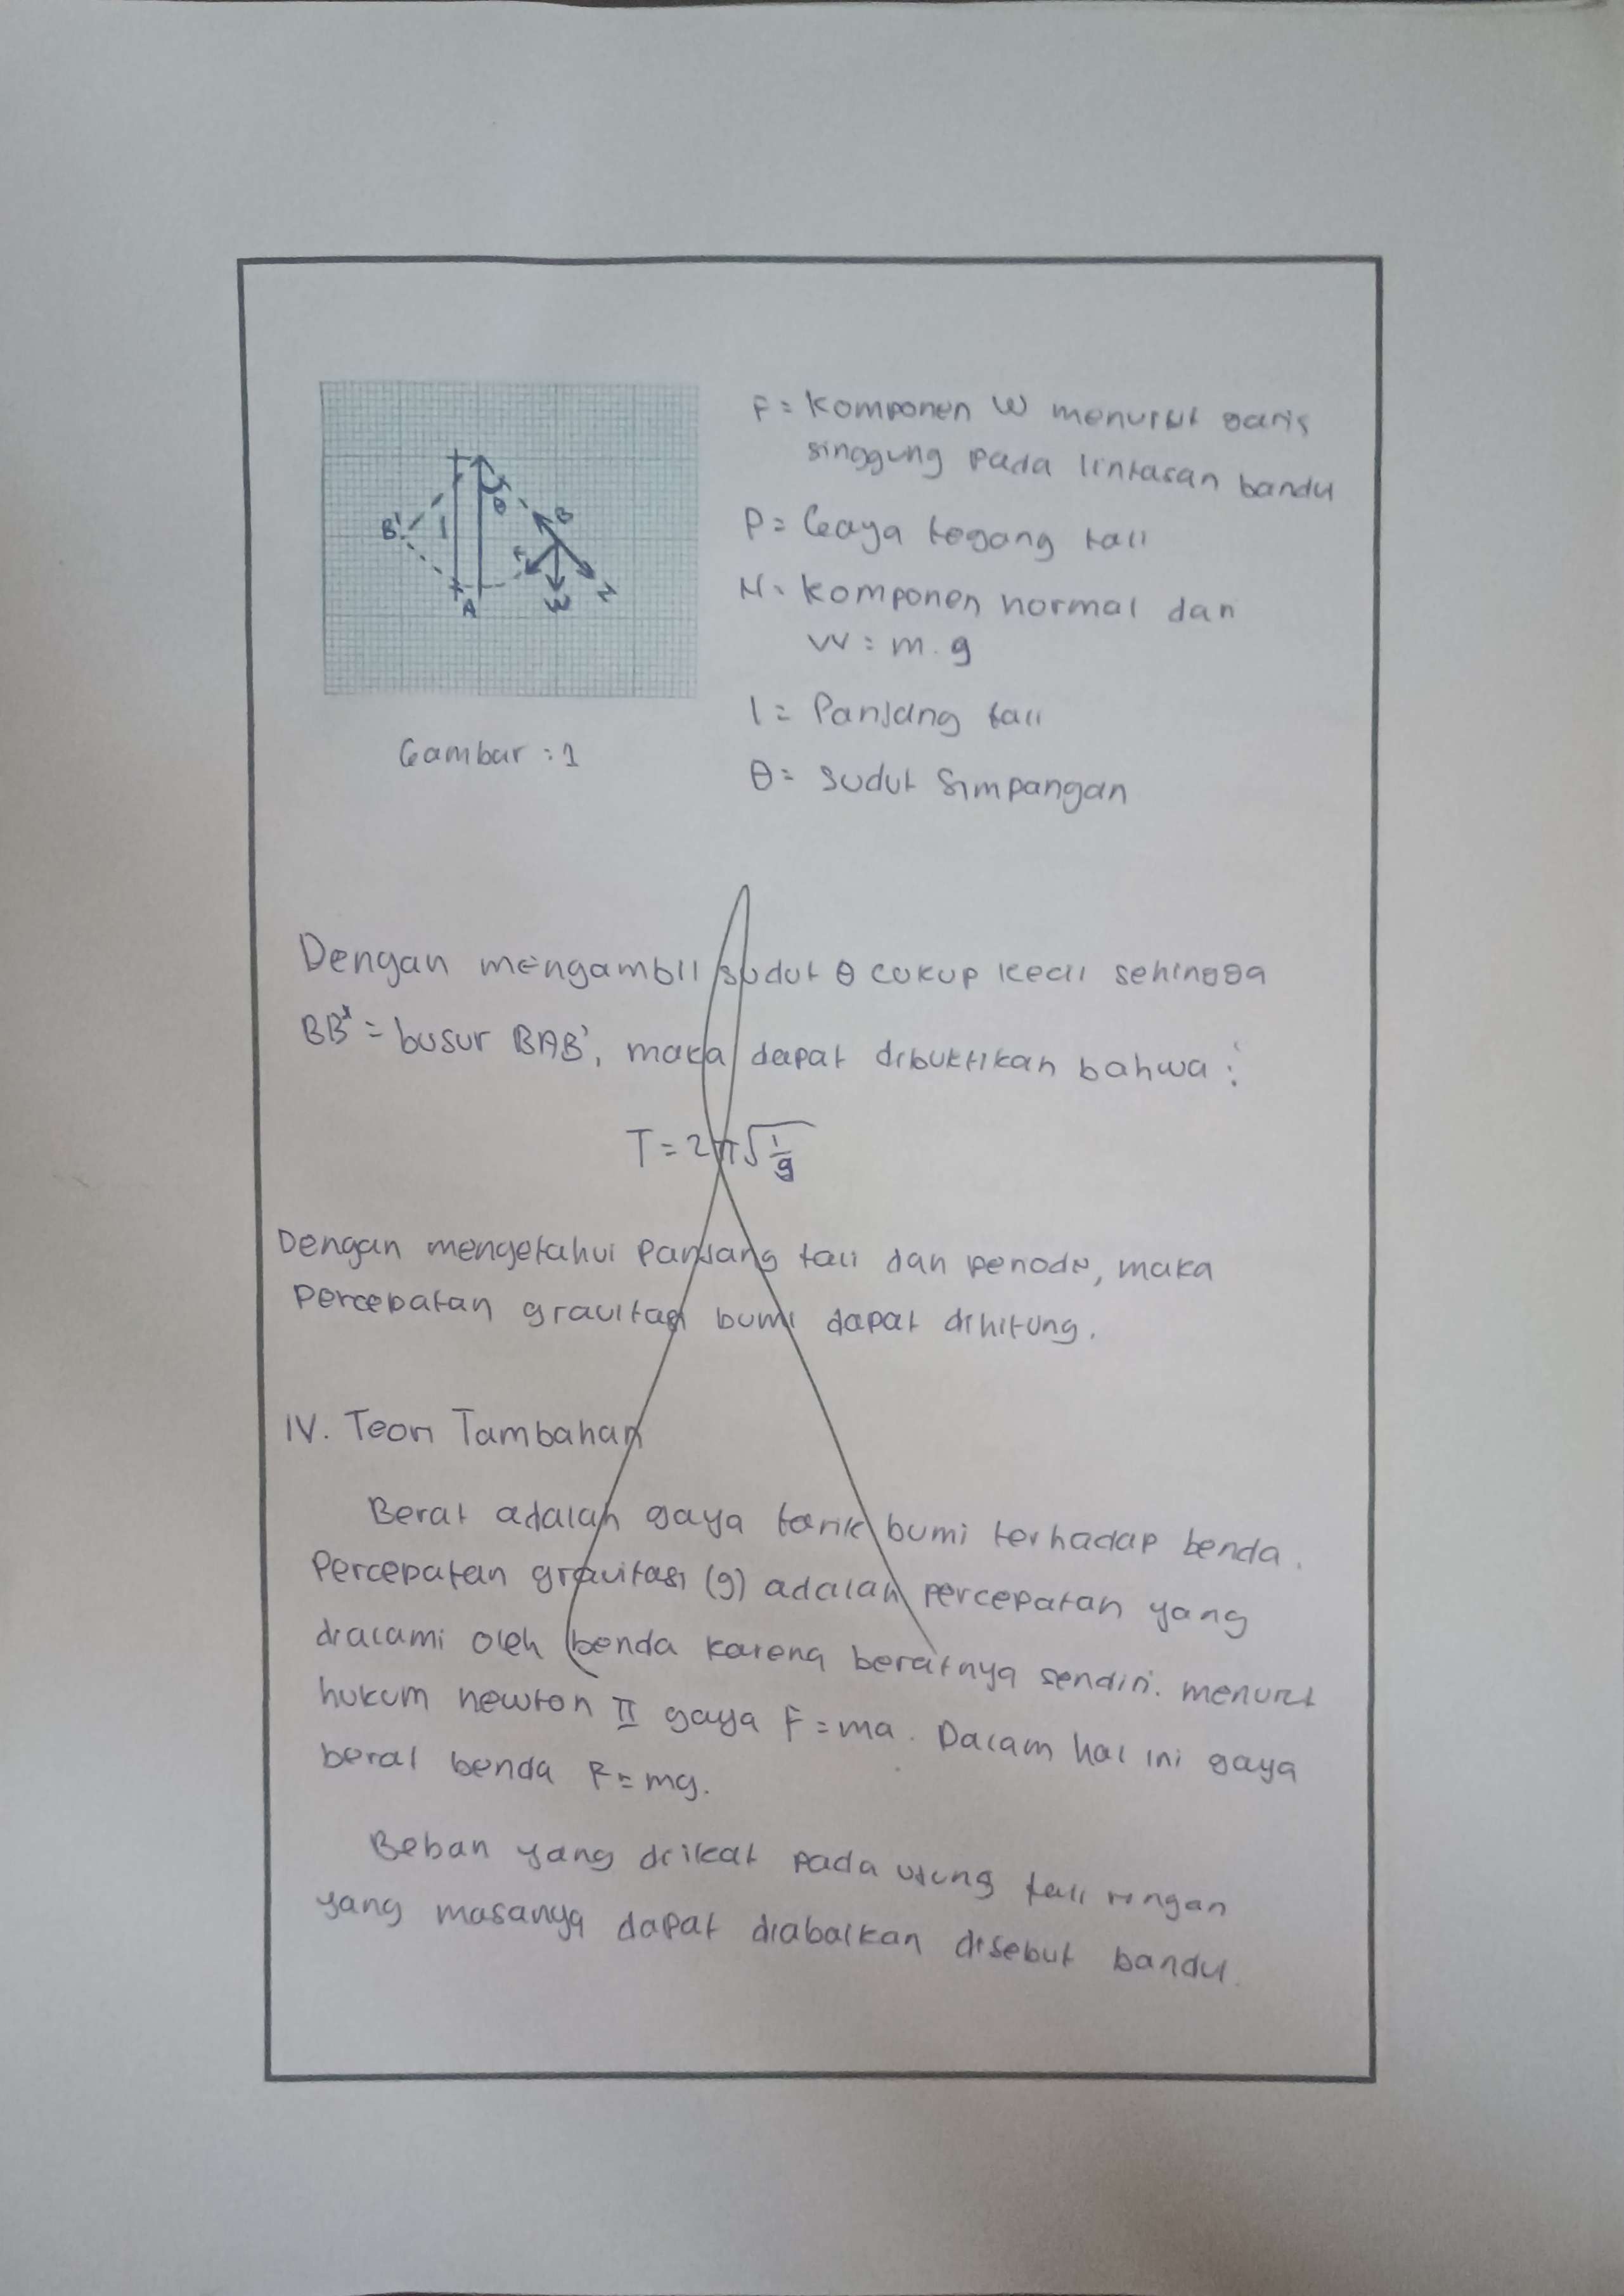 B'
l
θ
B
F
W
N
A
Gambar : 1
F = Komponen W menurut garis
singgung pada lintasan bandul
P = Gaya tegang tali
N = Komponen normal dari
W = m . g
l = Panjang tali
θ = Sudut Simpangan
Dengan mengambil sudut θ cukup kecil sehingga
BB' = busur BAB', maka dapat dibuktikan bahwa :
T = 2π√l/g
Dengan mengetahui panjang tali dan periode, maka
Percepatan gravitasi bumi dapat dihitung.
IV. Teori Tambahan
Berat adalah gaya tarik bumi terhadap benda.
Percepatan gravitasi (g) adalah percepatan yang
dialami oleh benda karena beratnya sendiri. menurut
hukum newton II gaya F = ma. Dalam hal ini gaya
berat benda F = mg.
Beban yang diikat pada ujung tali ringan
yang masanya dapat diabaikan disebut bandul.